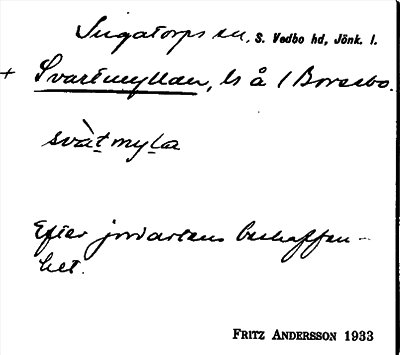 Ingatorps sn, S. Vedbo hd, Jönk. l.
+ Svartmyllan, ls å / Boresbo.
svàtmyla
Efter jordartens beskaffen-
het.
FRITZ ANDERSSON 1933